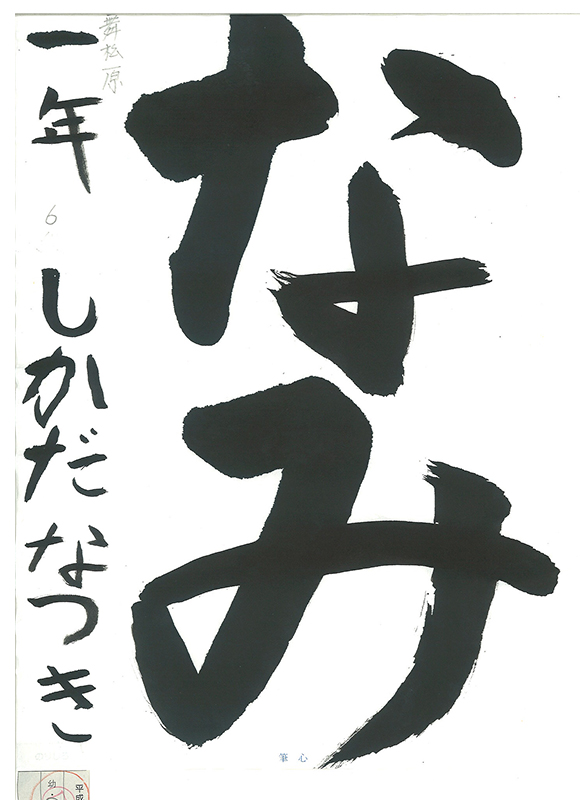 なみ
舞松原
一年 6 しかだなつき
筆心
平成
幼・